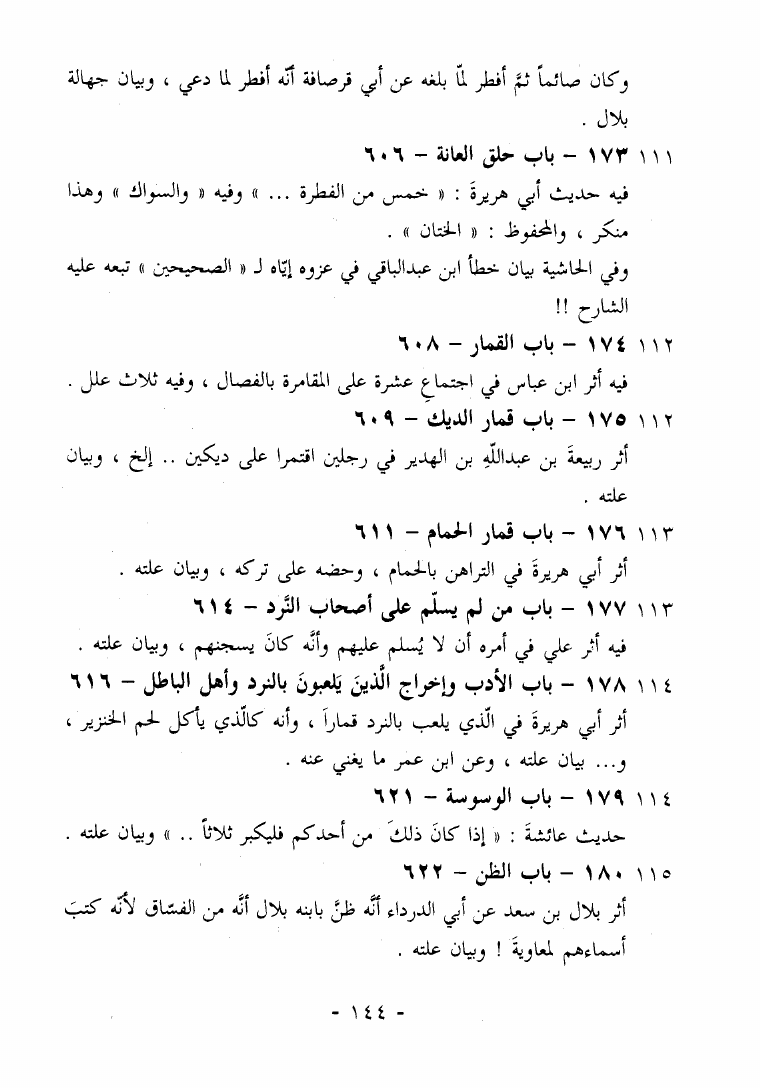 وكان صائماً ثمَّ أفطر لمّا بلغه عن أبي قرصافة أنّه أفطر لما دعي ، وبيان جهالة
بلال .
١١١ ١٧٣ – باب حلق العانة – ٦٠٦
فيه حديث أبي هريرةَ : « خمس من الفطرة ... » وفيه « والسواك » وهذا
منكر ، والمحفوظ : « الختان » .
وفي الحاشية بيان خطأ ابن عبدالباقي في عزوه إيّاه لـ « الصحيحين » تبعه عليه
الشارح !!
١١٢ ١٧٤ – باب القمار – ٦٠٨
فيه أثر ابن عباس في اجتماعِ عشرة على المقامرة بالفصال ، وفيه ثلاث علل .
١١٢ ١٧٥ – باب قمار الديك – ٦٠٩
أثر ربيعةَ بن عبداللّهِ بن الهدير في رجلين اقتمرا على ديكين .. إلخ ، وبيان
علته .
١١٣ ١٧٦ – باب قمار الحمام – ٦١١
أثر أبي هريرةَ في التراهن بالحمام ، وحضه على تركه ، وبيان علته .
١١٣ ١٧٧ – باب من لم يسلّم على أصحاب النَّرد – ٦١٤
فيه أثر علي في أمره أن لا يُسلم عليهم وأنَّه كانَ يسجنهم ، وبيان علته .
١١٤ ١٧٨ – باب الأدب وإخراج الَّذينَ يَلعبونَ بالنرد وأهل الباطل – ٦١٦
أثر أبي هريرةَ في الّذي يلعب بالنرد قماراً ، وأنه كالّذي يأكل لحم الخنزير ،
و... بيان علته ، وعن ابن عمر ما يغني عنه .
١١٤ ١٧٩ – باب الوسوسة – ٦٢١
حديث عائشةَ : « إذا كانَ ذلكَ من أحدكم فليكبر ثلاثاً .. » وبيان علته .
١١٥ ١٨٠ – باب الظن – ٦٢٢
أثر بلال بن سعد عن أبي الدرداء أنَّه ظنَّ بابنه بلال أنَّه من الفسّاق لأنّه كتبَ
أسماءهم لمعاويةَ ! وبيان علته .
- ١٤٤ -